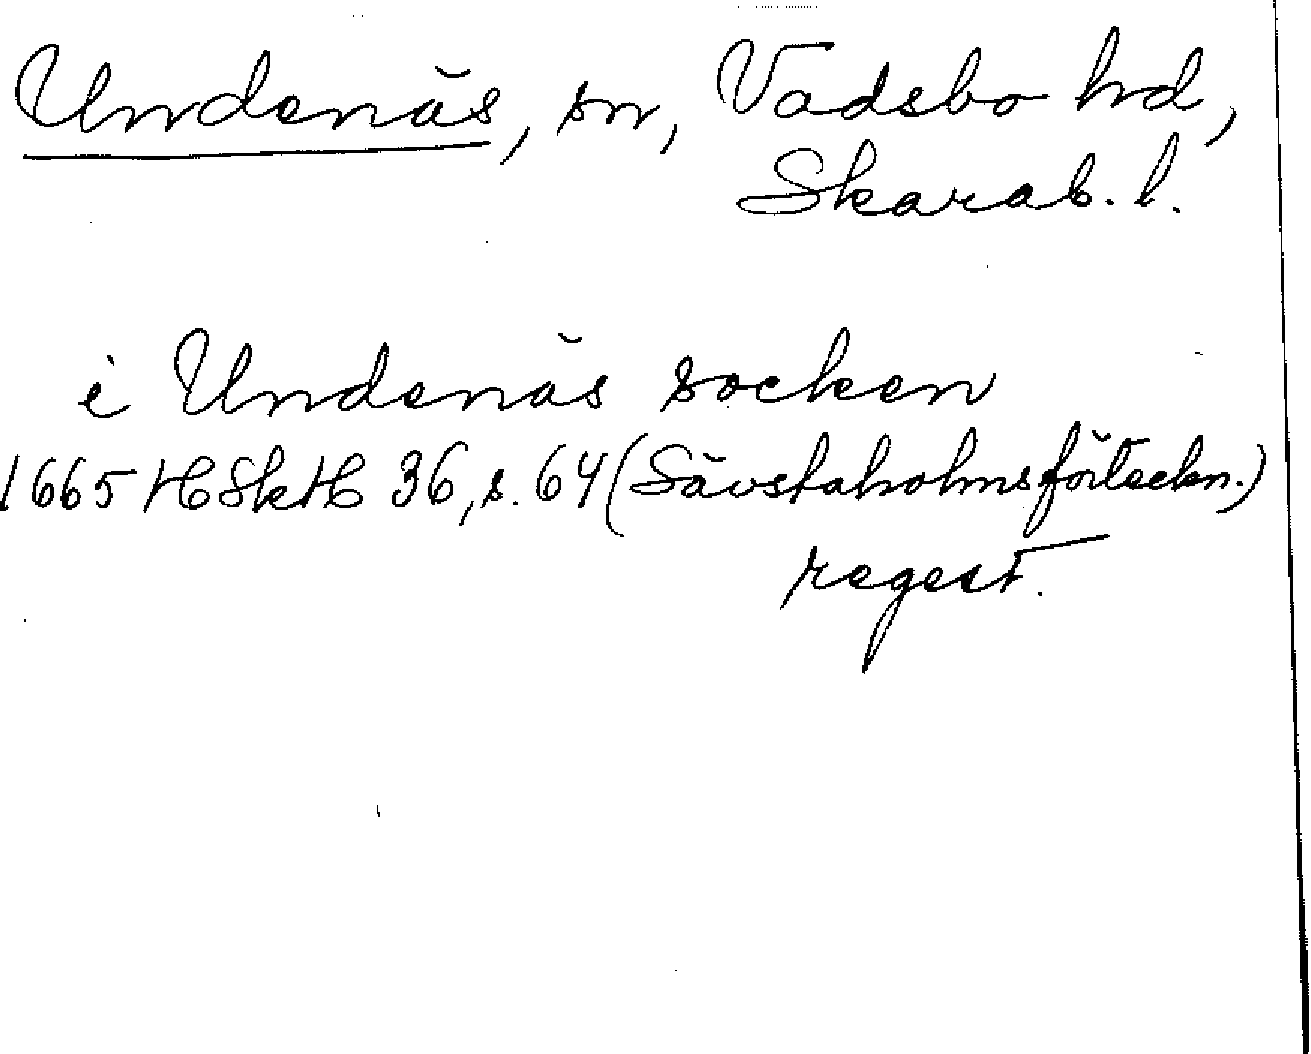 Undenäs, sn, Vadsbo hd,
Skarab. l.
i Undenäs socken
1665 HSkH 36, s. 64 (Sävstaholmsförteckn.)
regest.